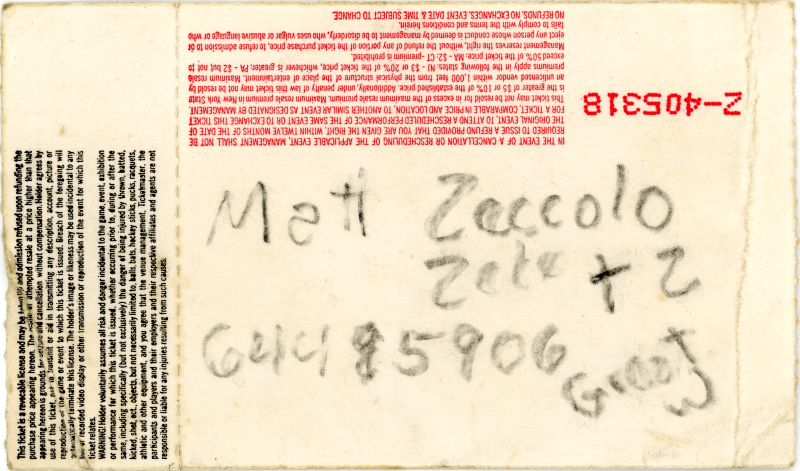 IN THE EVENT OF A CANCELLATION OR RESCHEDULING OF THE APPLICABLE EVENT, MANAGEMENT SHALL NOT BE
REQUIRED TO ISSUE A REFUND PROVIDED THAT YOU ARE GIVEN THE RIGHT, WITHIN TWELVE MONTHS OF THE DATE OF
THE ORIGINAL EVENT, TO ATTEND A RESCHEDULED PERFORMANCE OF THE SAME EVENT OR TO EXCHANGE THIS TICKET
FOR A TICKET, COMPARABLE IN PRICE AND LOCATION, TO ANOTHER SIMILAR EVENT AS DESIGNATED BY MANAGEMENT.
This ticket may not be resold for in excess of the maximum resale premium. Maximum resale premium in New York State
is the greater of $5 or 10% of the established price. Additionally, under penalty of law this ticket may not be resold by
an unlicensed vendor within 1,000 feet from the physical structure of the place of entertainment. Maximum resale
premiums apply in the following states: NJ - $3 or 20% of the ticket price, whichever is greater. PA - $2 but not to
exceed 50% of the ticket price: MA - $2: CT - premium is prohibited.
Management reserves the right, without the refund of any portion of the ticket purchase price, to refuse admission to or
eject any person whose conduct is deemed by management to be disorderly, who uses vulgar or abusive language or who
fails to comply with the terms and conditions herein.
NO REFUNDS. NO EXCHANGES. EVENT DATE & TIME SUBJECT TO CHANGE.
Z-405318
This ticket is a revocable license and may be and admission refused upon refunding the
purchase price appearing hereon. The or attempted resale at a price higher than that
appearing hereon is grounds for and cancellation without compensation. Holder agrees by
use of this ticket, not to transmit or aid in transmitting any description, account, picture or
reproduction of the game or event to which this ticket is issued. Breach of the foregoing will
automatically terminate this license. The holder's image or likeness may be used incidental to any
live or recorded video display or other transmission or reproduction of the event for which this
ticket relates.
WARNING! Holder voluntarily assumes all risk and danger incidental to the game, event, exhibition
or performance for which this ticket is issued, whether occurring prior to, during or after the
same, including specifically (but not exclusively) the danger of being injured by thrown, batted,
kicked, shot, ect. objects, but not necessarily limited to, balls, bats, hockey sticks, pucks, racquets,
athletic and other equipment, and you agree that the venue management, Ticketmaster, the
participants and players and their employers and their respective affiliates and agents are not
responsible or liable for any injuries resulting from such causes.
Matt Zaccolo
+ 2